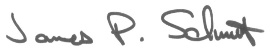 James P. Schmitt